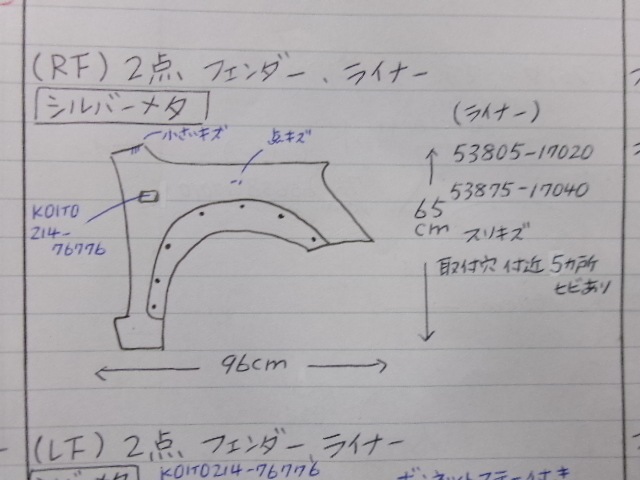 (RF) 2点、フェンダー、ライナー
シルバーメタ
小さいキズ
点キズ
KOITO
214-
76776
(ライナー)
53805-17020
53875-17040
65
cm
スリキズ
取付穴 付近 5カ所
ヒビあり
96cm
(LF) 2点、フェンダー、ライナー
シルバーメタ
KOITO214-76776
ボンネットステー付き